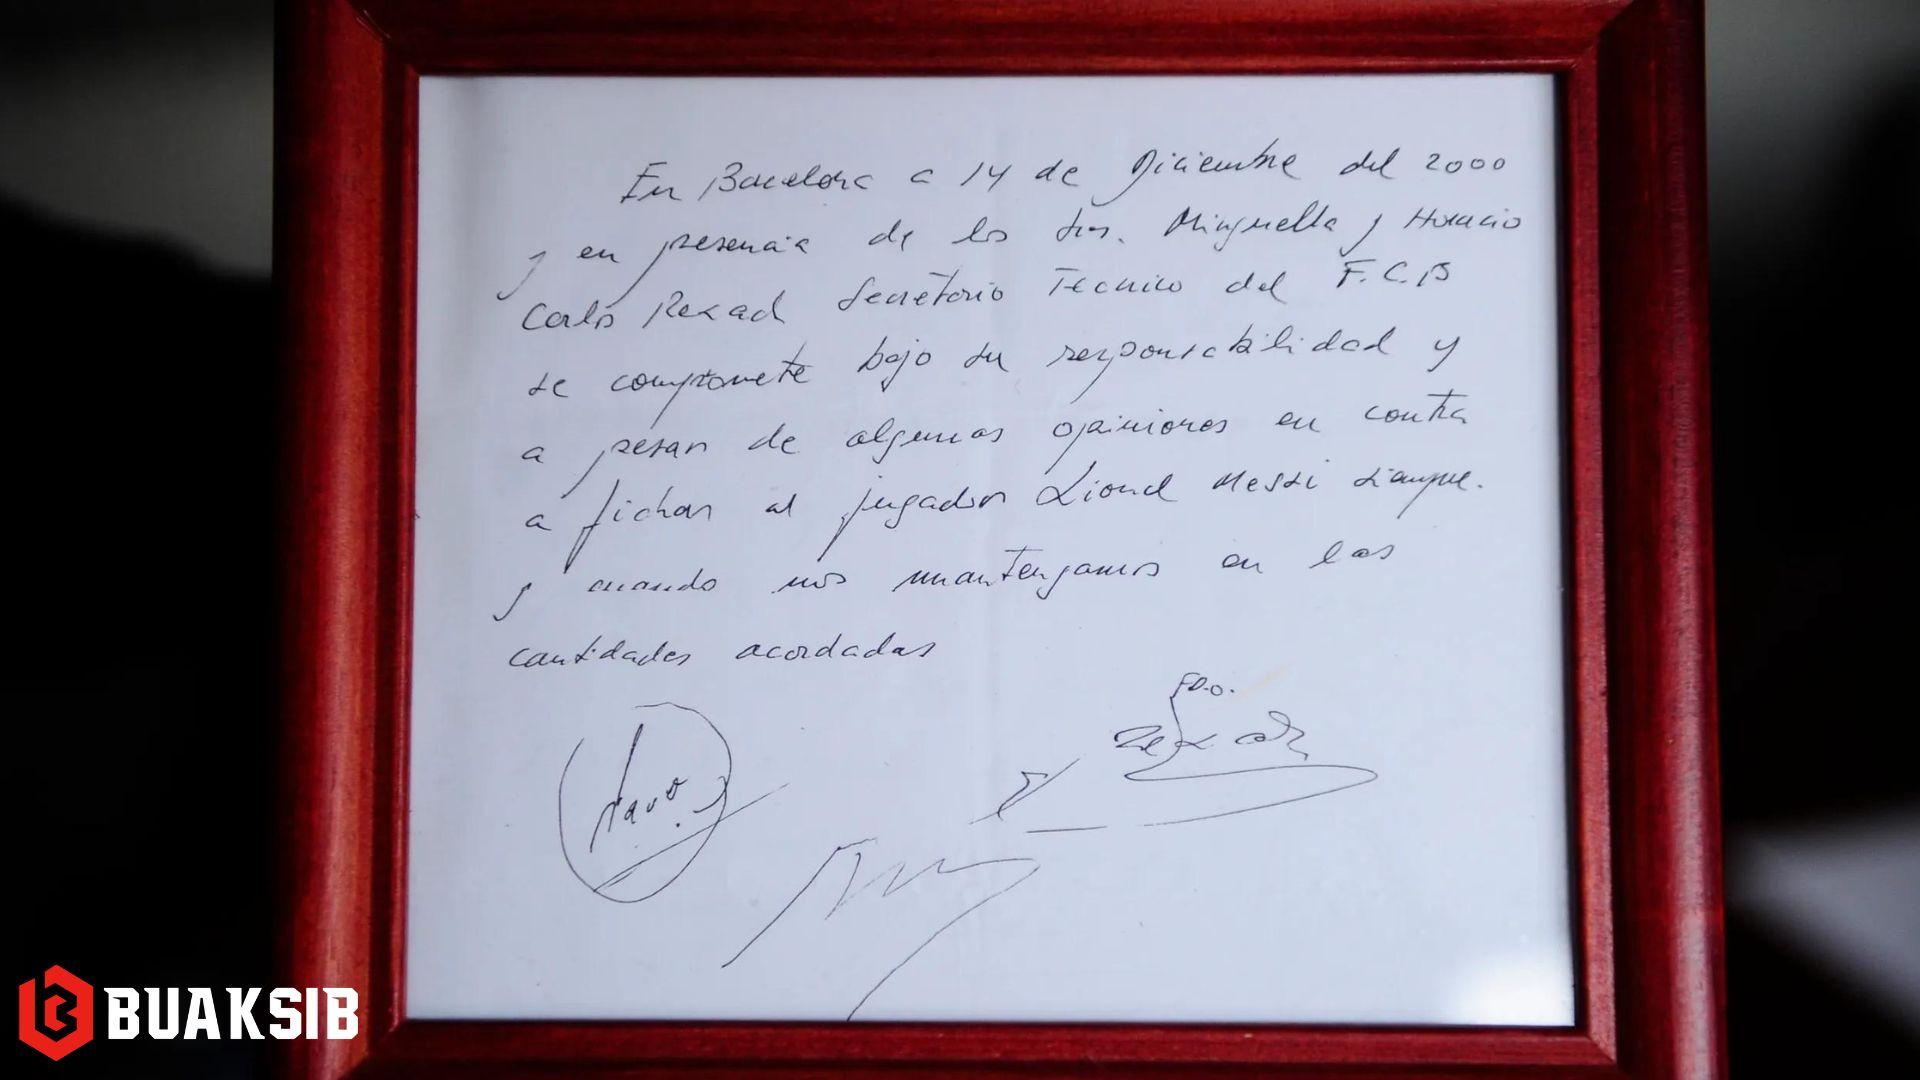 En Barcelona a 14 de Diciembre del 2000
y en presencia de los Srs. Minguella y Horacio
Carlos Rexach Secretario Tecnico del F.C.B
se compromete bajo su responsabilidad y
a pesar de algunas opiniones en contra
a fichar al jugador Lionel Messi siempre
y cuando nos mantengamos en las
cantidades acordadas
Fdo.
Rexach
BUAKSIB